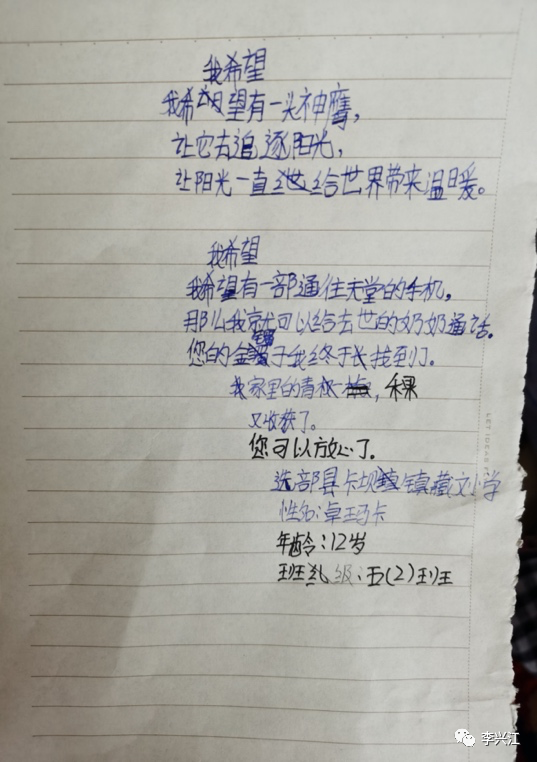 我希望
我希望有一头神鹰，
让它去追逐阳光，
让阳光一直给世界带来温暖。
我希望
我希望有一部通往天堂的手机，
那么我就可以给去世的奶奶通话。
您的金子我终于找到了。
我家里的青稞，稞
又收获了。
您可以放心了。
迭部县卡坝镇藏文小学
性名：卓玛卡
年龄：12岁
班级：五(2)班
LET IDEAS
李兴江